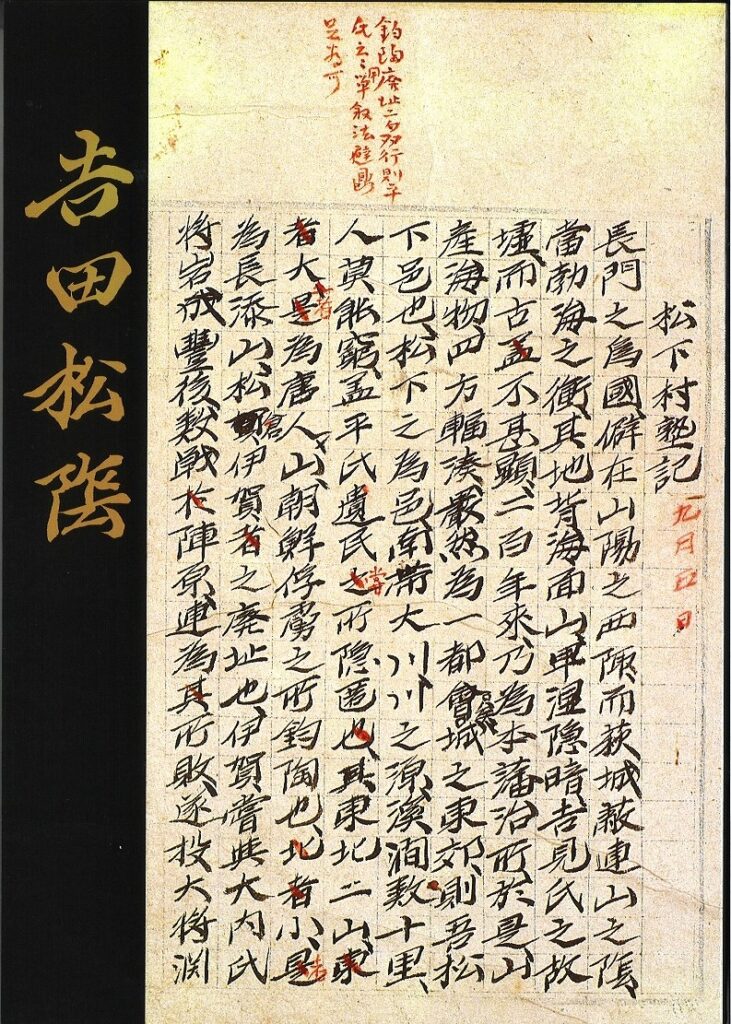 松下村塾記
九月
長門之爲國、僻在山陽之西陬、而萩城蔽連山之陰、
當勃海之衝、其地背海面山、卑濕隠暗、吉見氏之故
墟、而古盖不甚顕、二百年来、乃為本藩治所、於是山
產海物、四方輻湊、嚴然為一都會、城之東郊、則吾松
下邑也、松下之為邑、南帶大川、川之源、溪澗数十里、
人莫能窮、盖平氏遺民之所隠匿也、其東北二山、東
者大是為唐人山、朝鮮俘虜之所鈞陶也、北者小、是
為長添山、松倉伊賀者之廃址也、伊賀嘗與大内氏
将岩成豐後、数戦於陣原、連為其所敗、遂投大将渊
者
嘗
者
鈞陶廃址二句双行則平
吉田松陰